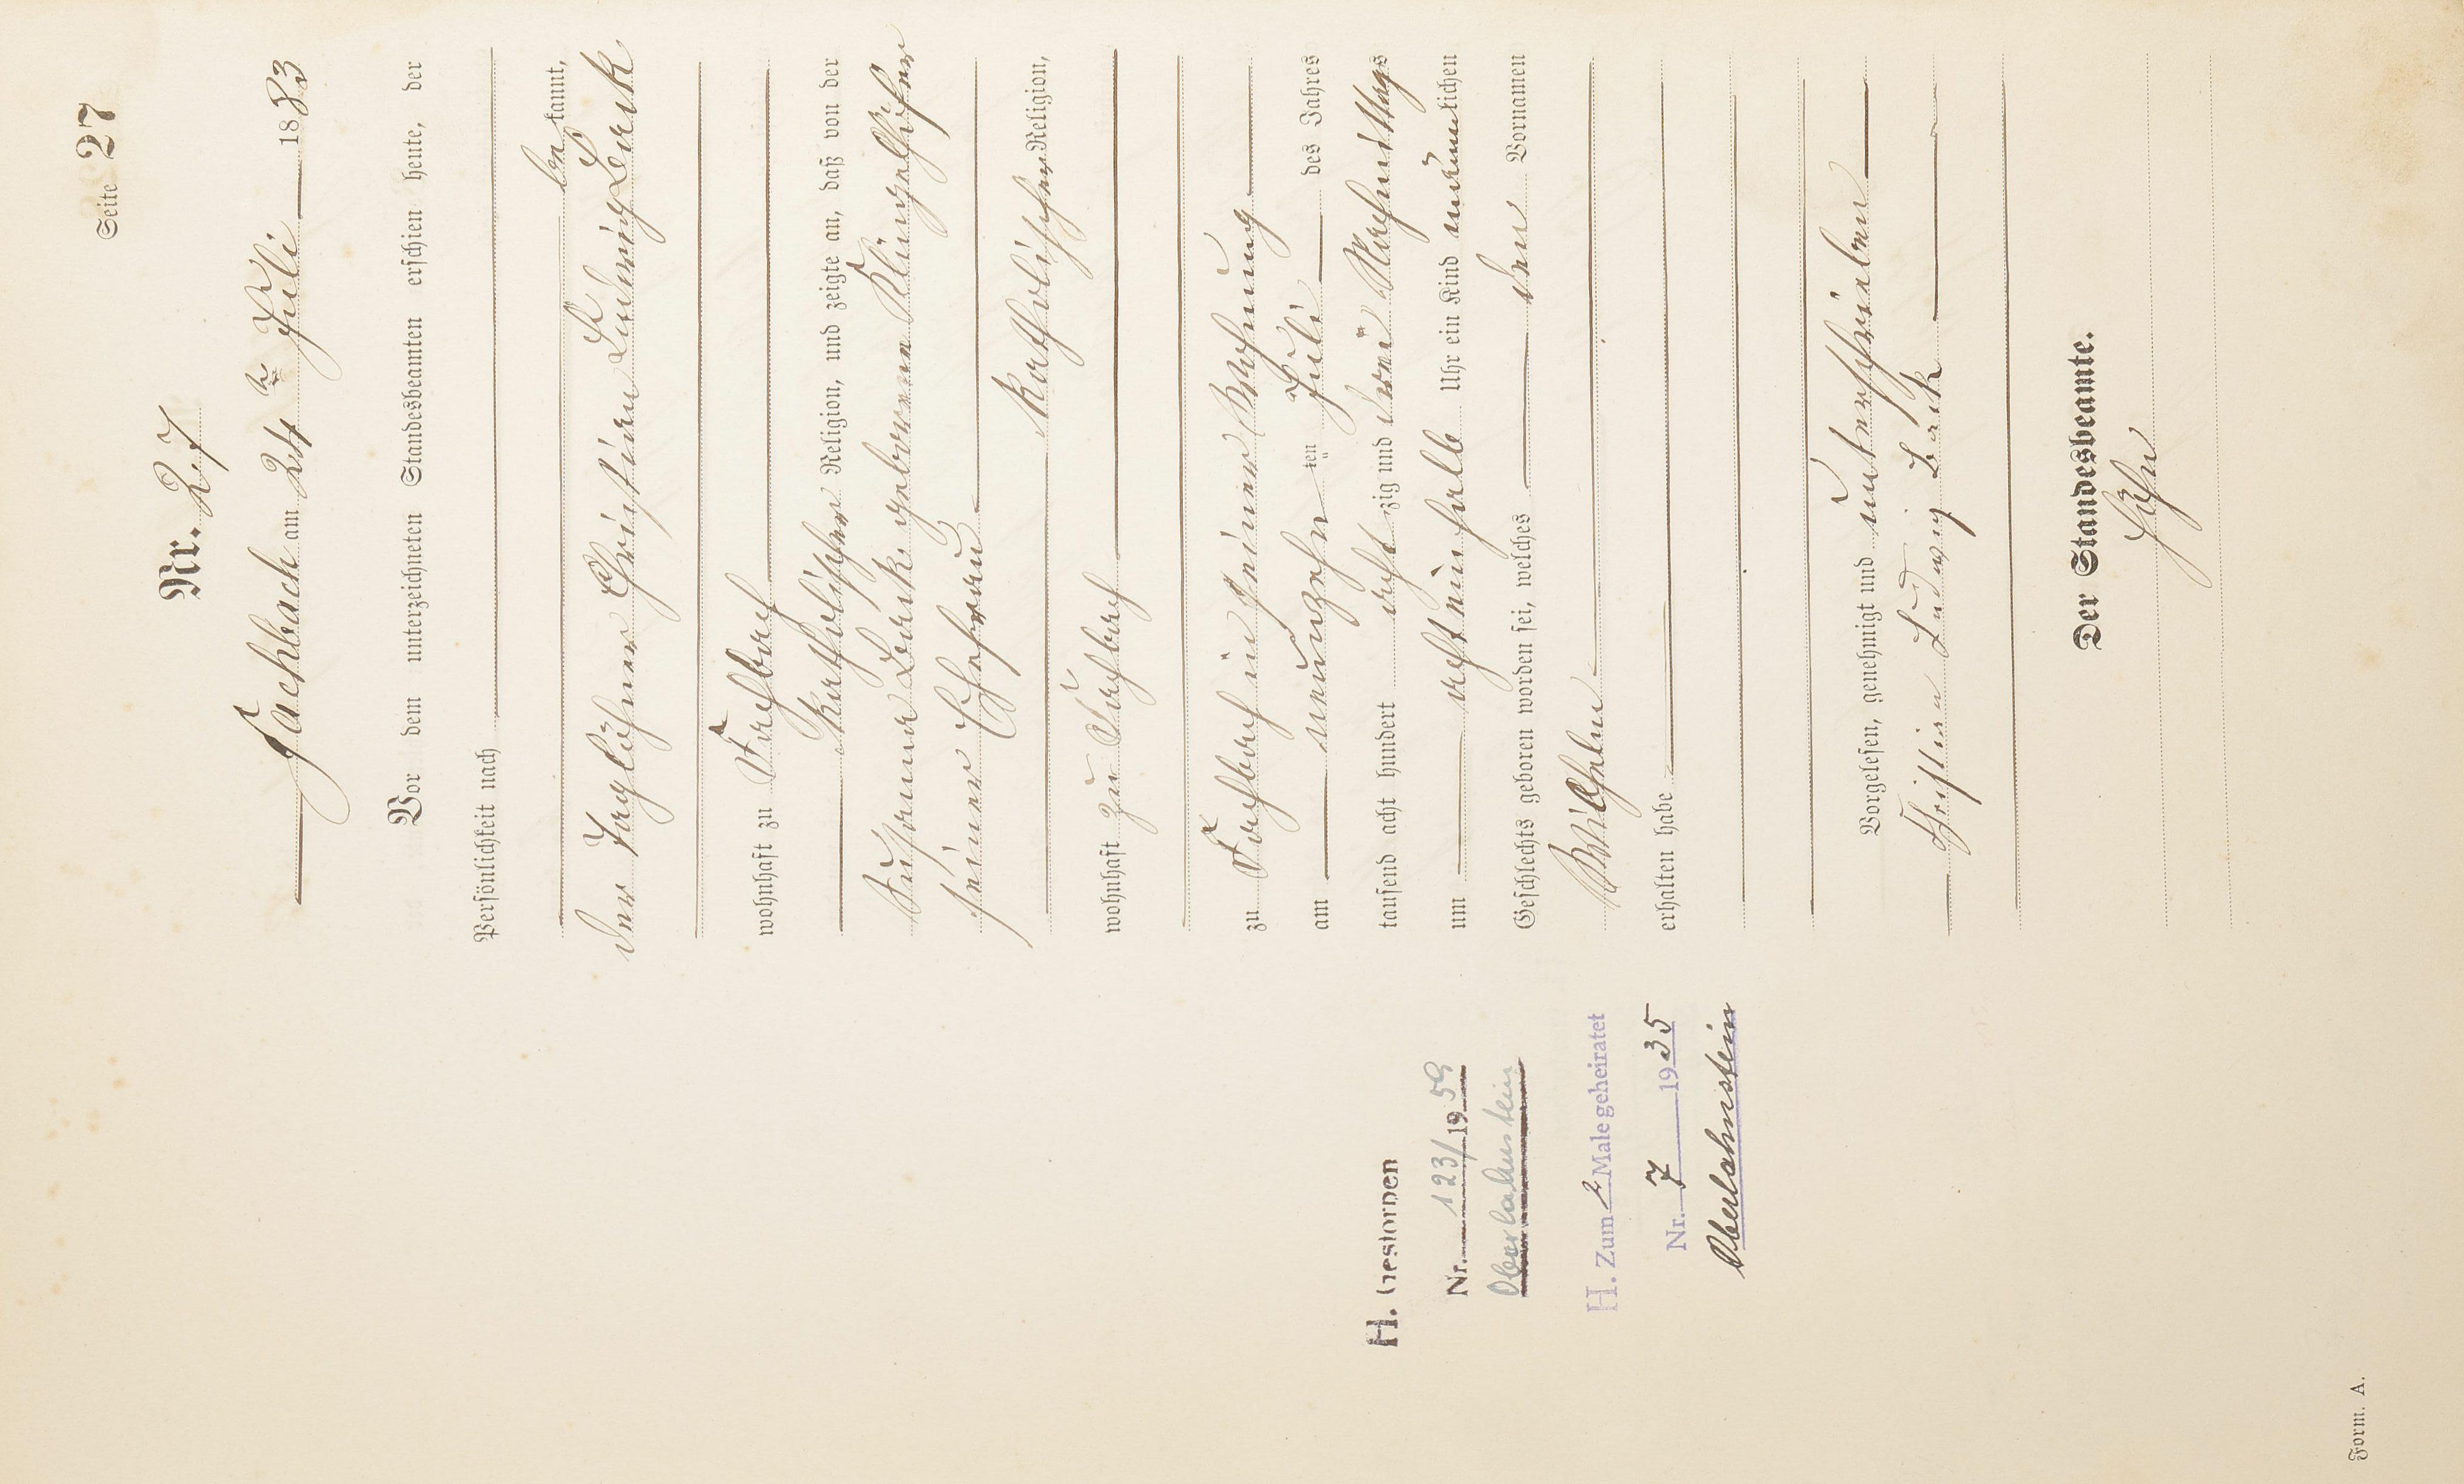 Seite 27
Nr. 27
Fachbach am 24 n Juli 1883
Vor dem unterzeichneten Standesbeamten erschien heute, der
Persönlichkeit nach
bekannt,
der Taglöhner Christian Ludwig Bank
wohnhaft zu Fachbach
katholischer Religion, und zeigte an, daß von der
Susanna Bank geborene Klingelhöfer
seiner Ehefrau
katholischer Religion,
wohnhaft zu Fachbach
zu Fachbach in seiner Wohnung
am neunzehn ten Juli des Jahres
tausend acht hundert acht zig und drei Nachmittags
um acht ein halb Uhr ein Kind männlichen
Geschlechts geboren worden sei, welches den Vornamen
Wilhelm
erhalten habe
Vorgelesen, genehmigt und unterschrieben
Christian Ludwig Bank
Der Standesbeamte.
H. Gestorben
Nr. 123/1959
Oberlahnstein
H. Zum 2 Male geheiratet
Nr. 7 1935
Oberlahnstein
Form. A.